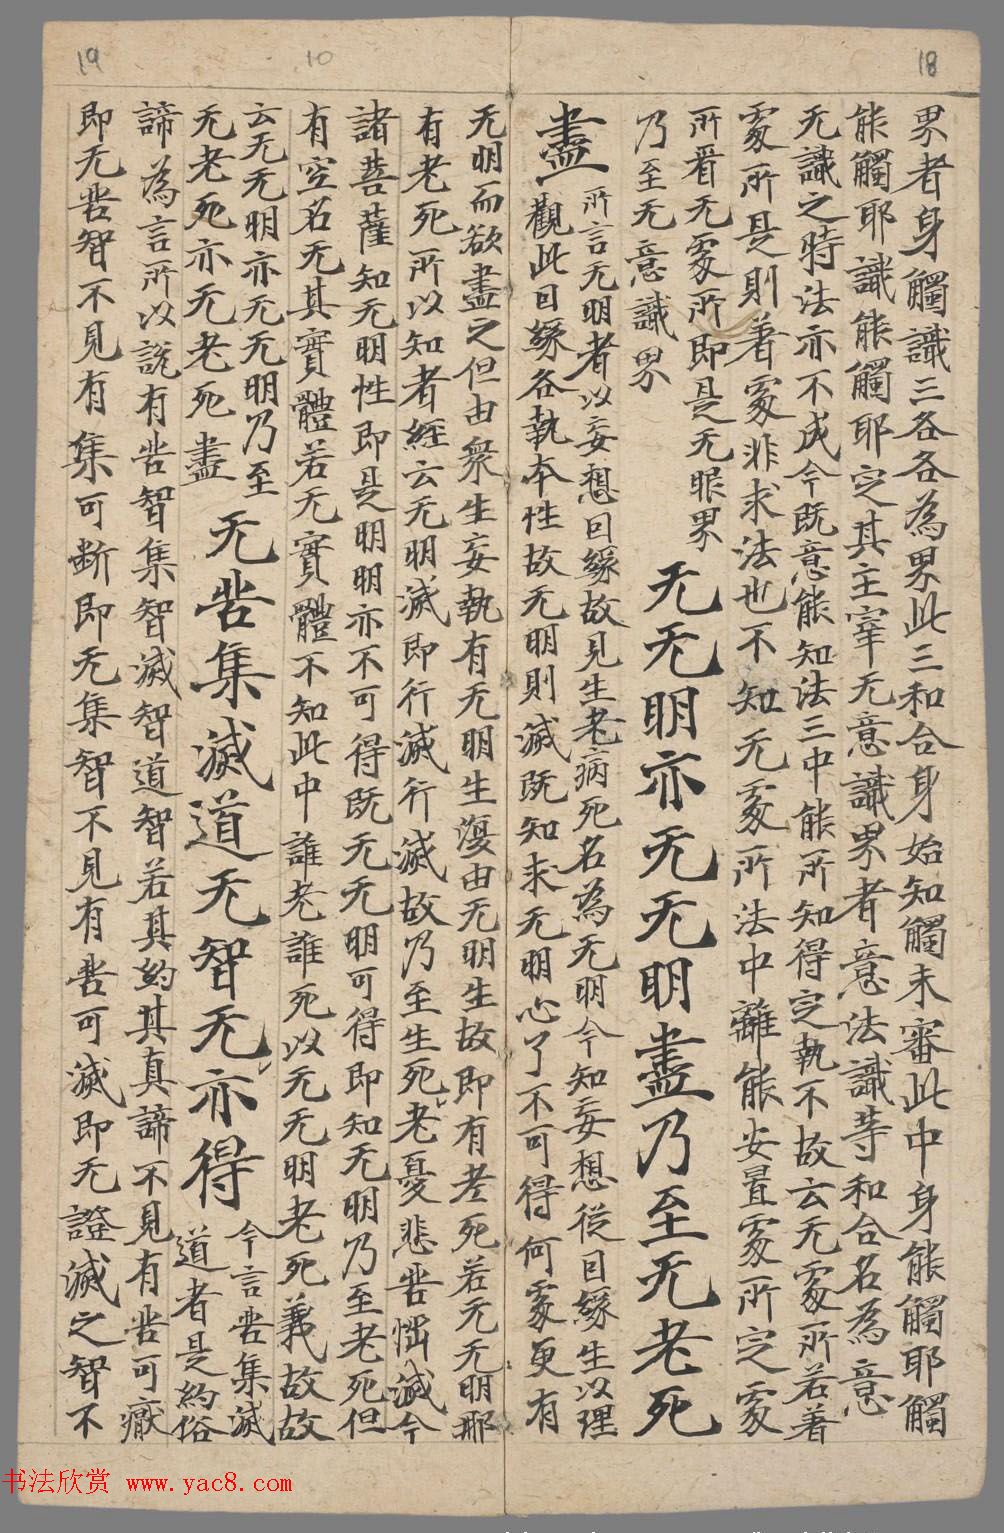 18
界者身觸識三各各為界此三和合身始知觸未審此中身能觸耶觸
能觸耶識能觸耶定其主宰无意識界者意法識等和合名為意
无識之時法亦不成今既意能知法三中能所知得定執不故云无處所若著
處所是則著處非求法也不知无處所法中離能安置處所定處
所看无處所即是无眼界
乃至无意識界
无无明亦无无明盡乃至无老死
盡
所言无明者以妄想因緣故見生老病死名為无明今知妄想從因緣生以理
觀此因緣各執本性故无明則滅既知求无明心了不可得何處更有
无明而欲盡之但由眾生妄執有无明生復由无明生故即有老死若无无明耶
有老死所以知者經云无明滅即行滅行滅故乃至生死老憂悲苦惱滅今
諸菩薩知无明性即是明明亦不可得既无无明可得即知无明乃至老死但
有空名无其實體若无實體不知此中誰老誰死以无无明老死義故故
云无无明亦无无明乃至
无老死亦无老死盡
无苦集滅道无智无亦得
今言苦集滅
道者是約俗
諦為言所以說有苦智集智滅智道智若其約其真諦不見有苦可厭
即无苦智不見有集可斷即无集智不見有苦可滅即无證滅之智不
10
19
书法欣赏 www.yac8.com